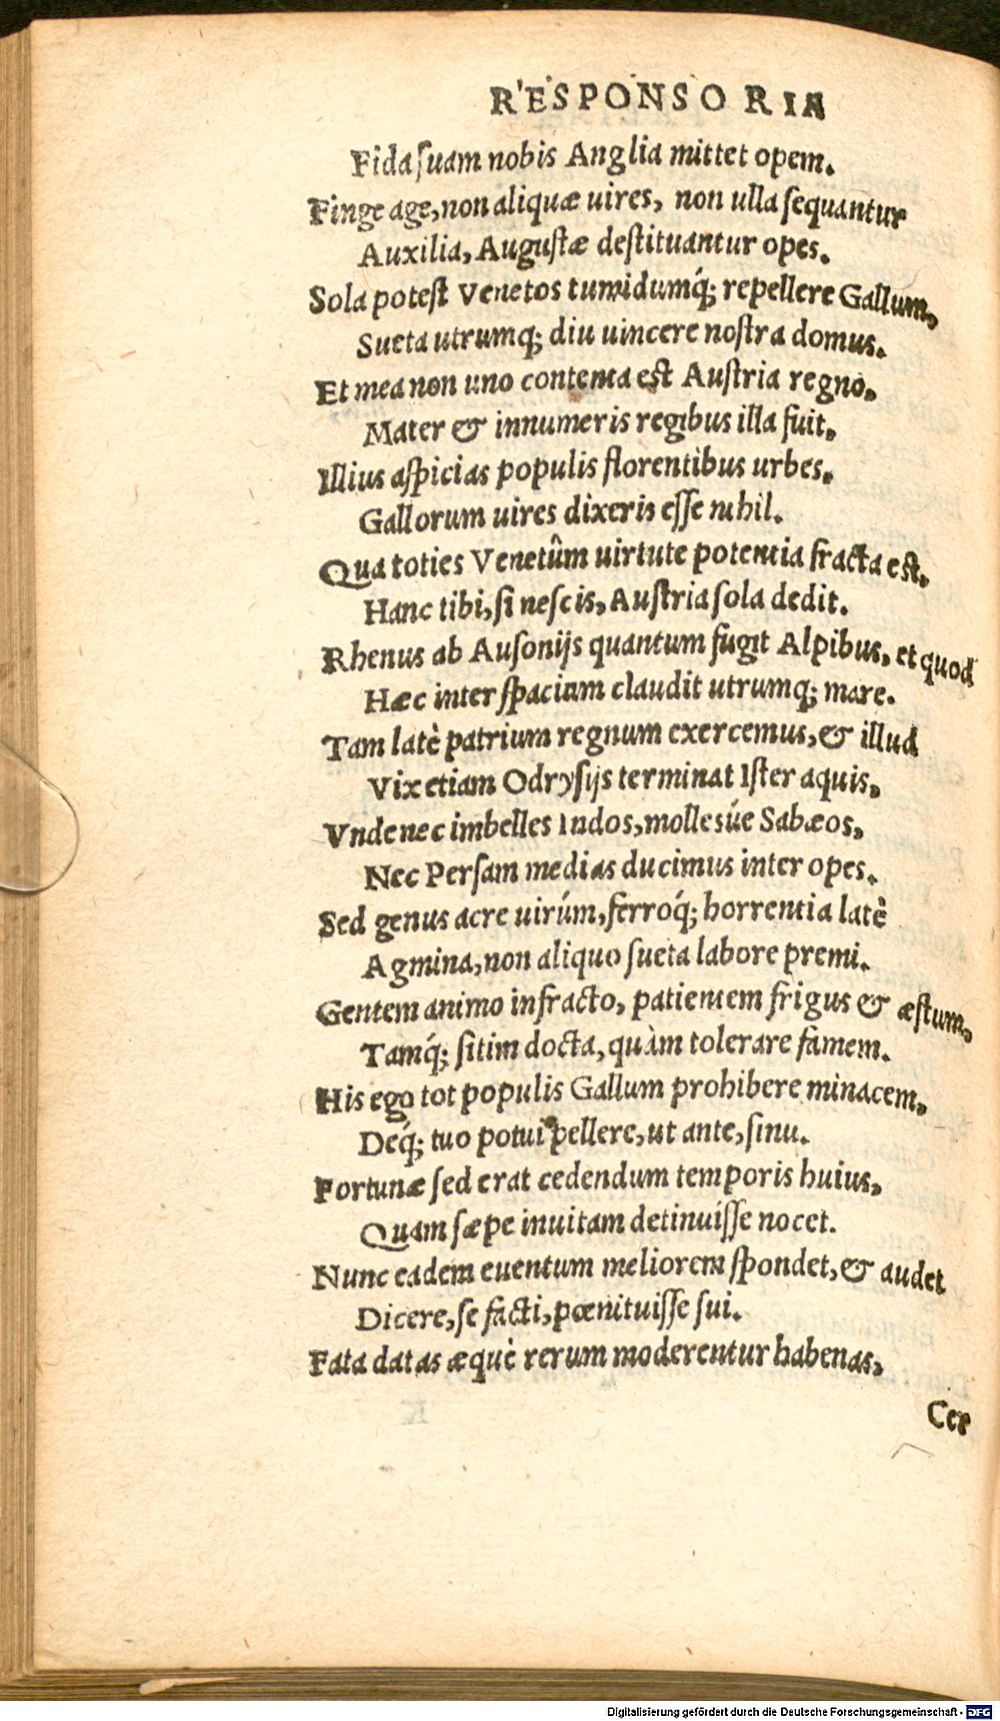 RESPONSORIA
Fida suam nobis Anglia mittet opem.
Finge age, non aliquæ uires, non ulla sequantur
Auxilia, Augustæ destituantur opes.
Sola potest Venetos tumidumq́; repellere Gallum,
Sueta utrumq; diu uincere nostra domus.
Et mea non uno contenta est Austria regno,
Mater & innumeris regibus illa fuit,
Illius aspicias populis florentibus urbes,
Gallorum uires dixeris esse nihil.
Qua toties Venetûm uirtute potentia fracta est,
Hanc tibi, si nescis, Austria sola dedit.
Rhenus ab Ausonijs quantum fugit Alpibus, et quod
Hæc inter spacium claudit utrumq; mare.
Tam latè patrium regnum exercemus, & illud
Vix etiam Odrysijs terminat Ister aquis,
Vnde nec imbelles Indos, mollesúe Sabæos,
Nec Persam medias ducimus inter opes.
Sed genus acre uirúm, ferroq́; horrentia latè
Agmina, non aliquo sueta labore premi.
Gentem animo infracto, patientem frigus & æstum,
Tamq́; sitim docta, quàm tolerare famem.
His ego tot populis Gallum prohibere minacem,
Deq́; tuo potui pellere, ut ante, sinu.
Fortunæ sed erat cedendum temporis huius,
Quam sæpe inuitam detinuisse nocet.
Nunc eadem euentum meliorem spondet, & audet
Dicere, se facti, pœnituisse sui.
Fata datas æquè rerum moderentur habenas,
Cer
Digitalisierung gefördert durch die Deutsche Forschungsgemeinschaft - DFG